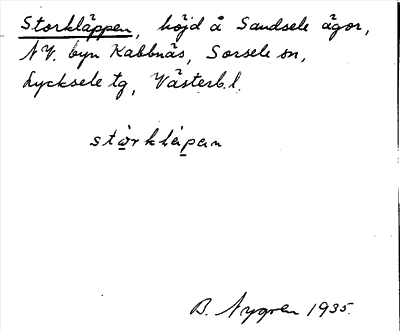 Storkläppen, höjd å Sandsele ägor,
NV. byn Kabbnäs, Sorsele sn,
Lycksele tg, Västerb. l.
stòrkläpan
B. Nygren 1935.